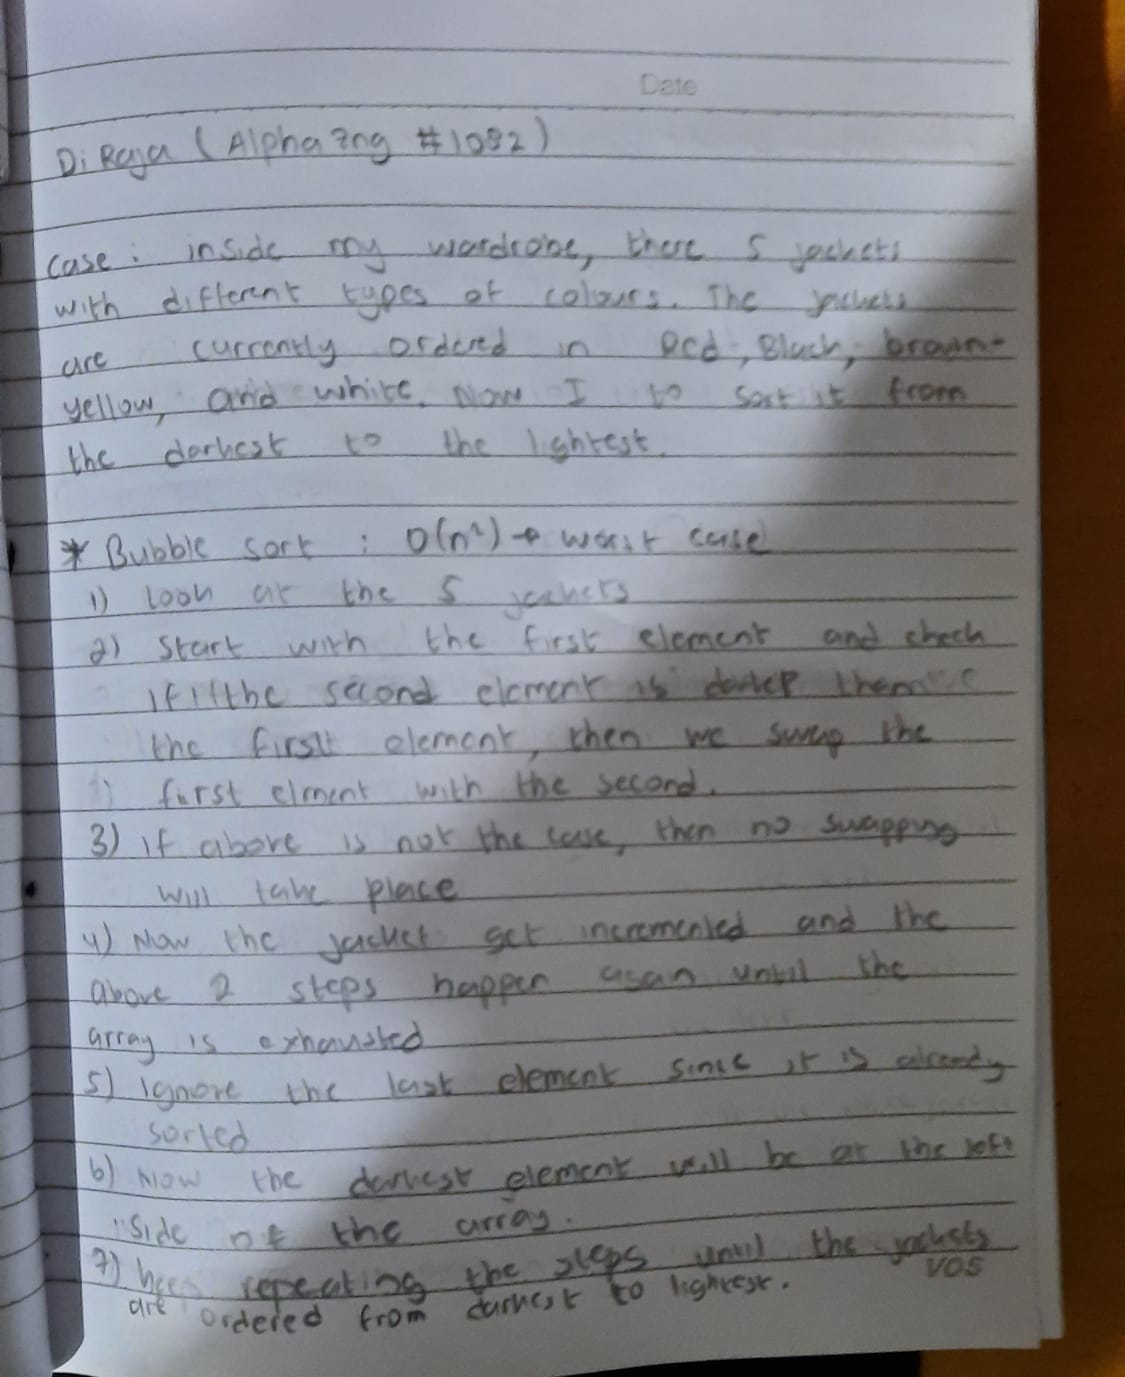 Date
Di Raja (Alpha Zng #1082)
case : inside my wardrobe, there 5 jackets
with different types of colours. The jackets
are currently ordered in Red, Black, brown,
yellow, and white. Now I to sort it from
the darkest to the lightest.
* Bubble sort : O(n²) → worst case
1) Look at the 5 jackets
2) Start with the first element and check
if the second element is darker then
the first element, then we swap the
first elment with the second.
3) if above is not the case, then no swapping
will take place
4) Now the jacket get incremented and the
above 2 steps happen again until the
array is exhausted
5) Ignore the last element since it is already
sorted
6) Now the darkest element will be at the left
side of the array.
7) keep repeating the steps until the jackets
VOS
are ordered from darkest to lightest.